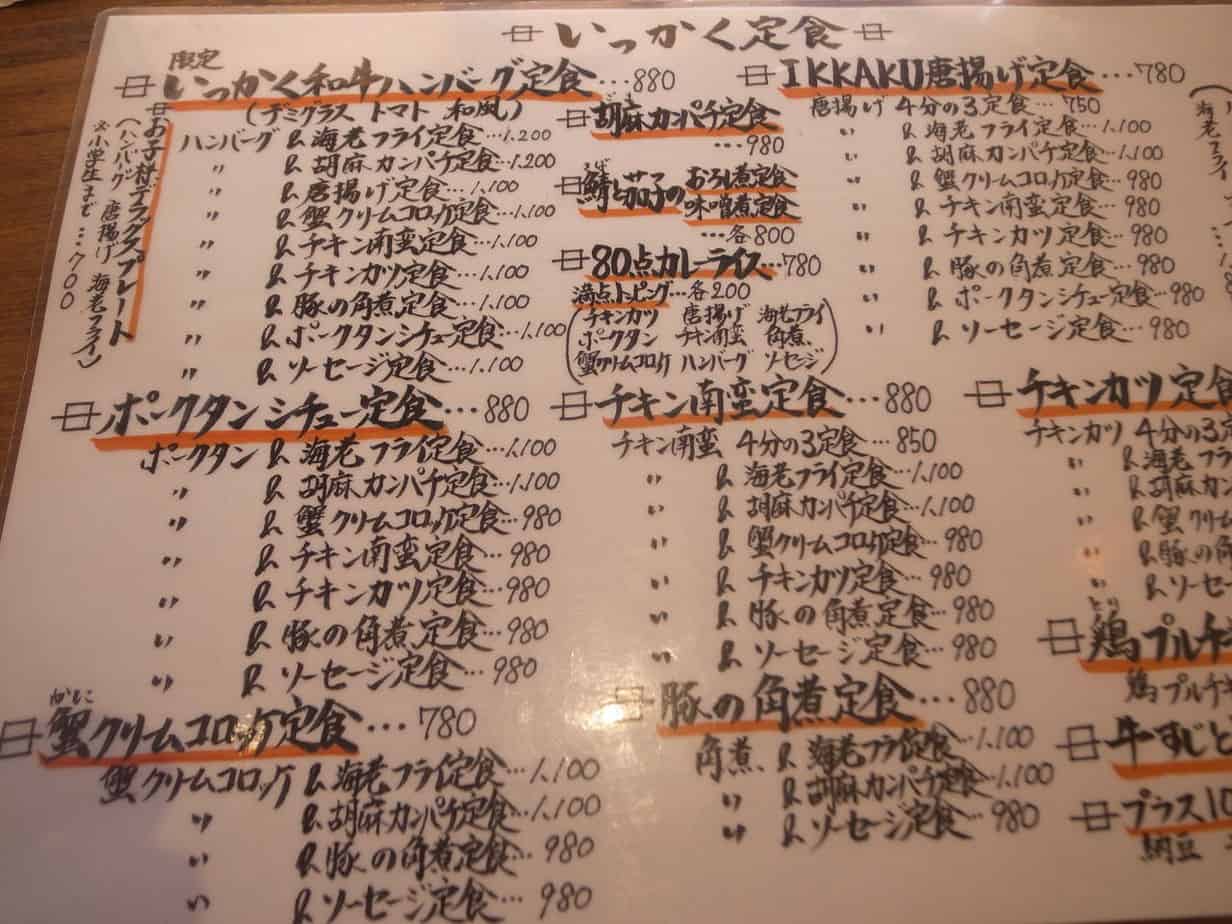 いっかく定食
限定
いっかく和牛ハンバーグ定食…880
(デミグラス トマト 和風)
ハンバーグ & 海老フライ定食…1,200
〃 & 胡麻カンパチ定食…1,200
〃 & 唐揚げ定食…1,100
〃 & 蟹クリームコロッケ定食…1,100
〃 & チキン南蛮定食…1,100
〃 & チキンカツ定食…1,100
〃 & 豚の角煮定食…1,100
〃 & ポークタンシチュー定食…1,100
〃 & ソーセージ定食…1,100
お子様デラックスプレート
(ハンバーグ 唐揚げ 海老フライ)
※小学生まで…700
胡麻カンパチ定食
…980
鯖と茄子の おろし煮定食
味噌煮定食
…各800
80点カレーライス…780
満点トッピング…各200
(チキンカツ 唐揚げ 海老フライ
ポークタン チキン南蛮 角煮
蟹クリームコロッケ ハンバーグ ソーセージ)
IKKAKU唐揚げ定食…780
唐揚げ 4分の3定食…750
〃 & 海老フライ定食…1,100
〃 & 胡麻カンパチ定食…1,100
〃 & 蟹クリームコロッケ定食…980
〃 & チキン南蛮定食…980
〃 & チキンカツ定食…980
〃 & 豚の角煮定食…980
〃 & ポークタンシチュー定食…980
〃 & ソーセージ定食…980
(海老フライ
ポークタンシチュー定食…880
ポークタン & 海老フライ定食…1,100
〃 & 胡麻カンパチ定食…1,100
〃 & 蟹クリームコロッケ定食…980
〃 & チキン南蛮定食…980
〃 & チキンカツ定食…980
〃 & 豚の角煮定食…980
〃 & ソーセージ定食…980
チキン南蛮定食…880
チキン南蛮 4分の3定食…850
〃 & 海老フライ定食…1,100
〃 & 胡麻カンパチ定食…1,100
〃 & 蟹クリームコロッケ定食…980
〃 & チキンカツ定食…980
〃 & 豚の角煮定食…980
〃 & ソーセージ定食…980
チキンカツ定食
チキンカツ 4分の3定
〃 & 海老フラ
〃 & 胡麻カン
〃 & 蟹クリー
〃 & 豚の角
〃 & ソーセー
かに
蟹クリームコロッケ定食…780
蟹クリームコロッケ & 海老フライ定食…1,100
〃 & 胡麻カンパチ定食…1,100
〃 & 豚の角煮定食…980
〃 & ソーセージ定食…980
豚の角煮定食…880
角煮 & 海老フライ定食…1,100
〃 & 胡麻カンパチ定食…1,100
〃 & ソーセージ定食…980
とり
鶏プルチ
鶏プルチ
牛すじと
プラス1
納豆